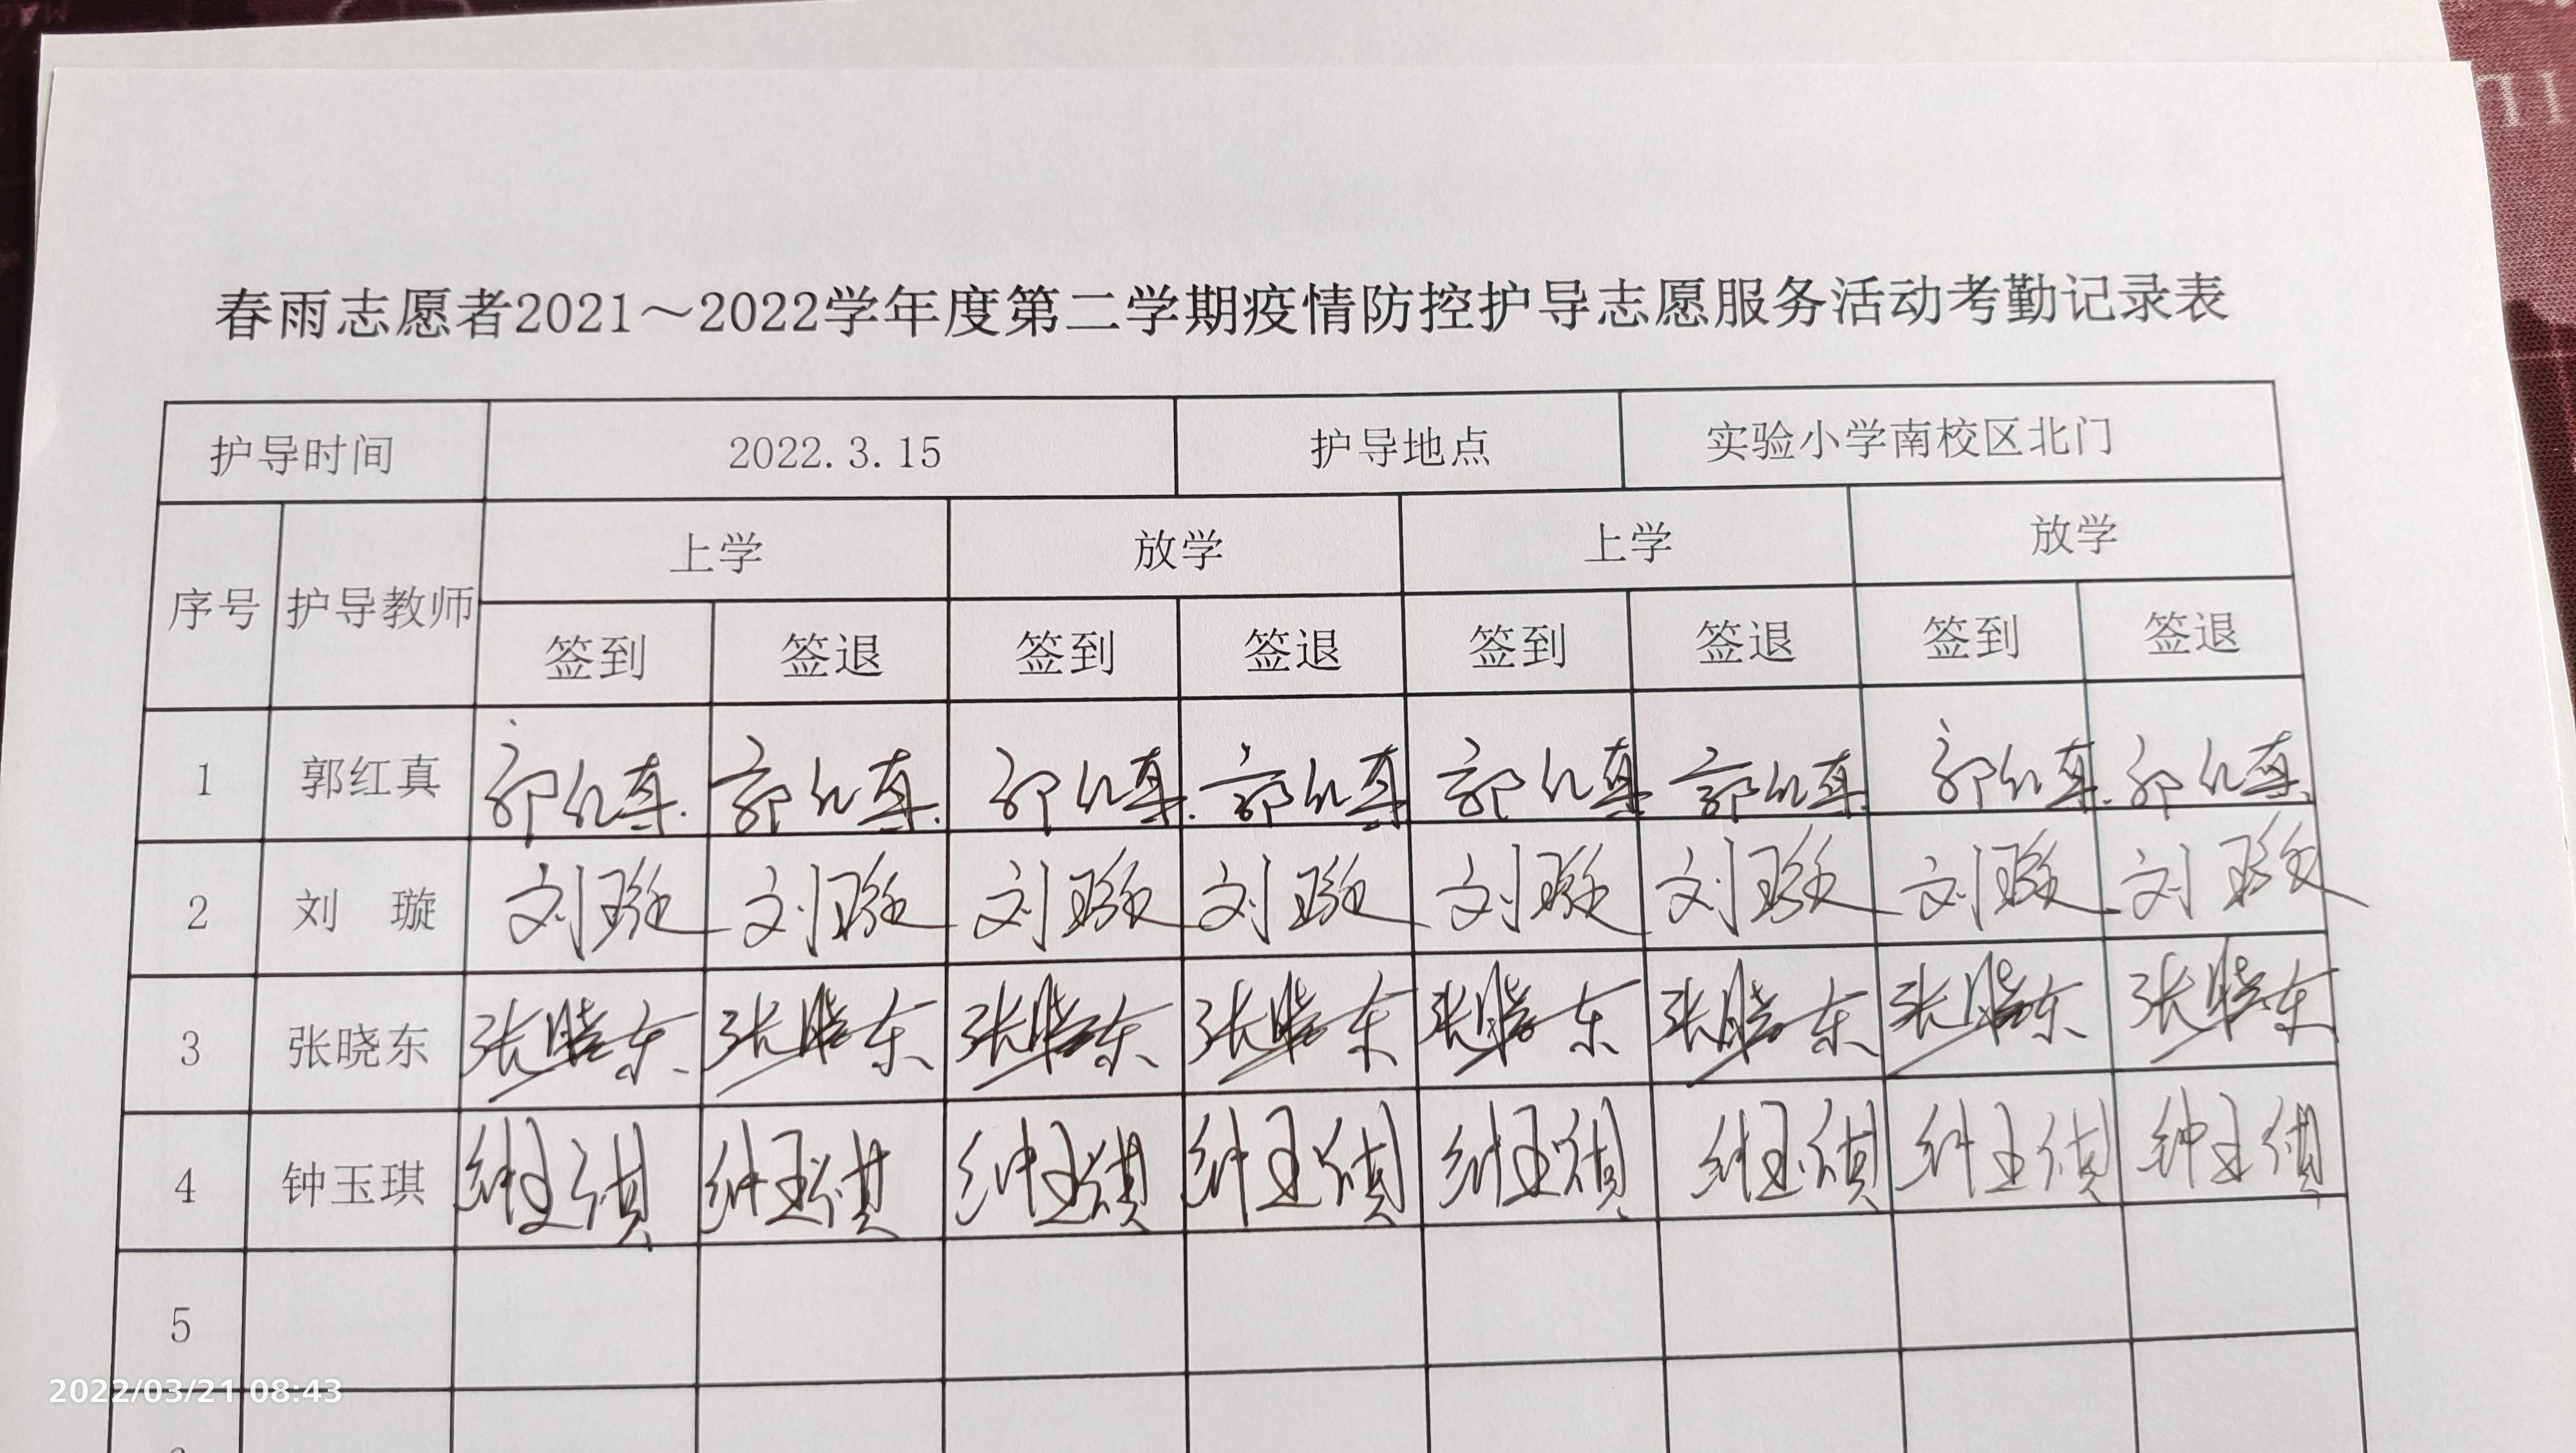 春雨志愿者2021～2022学年度第二学期疫情防控护导志愿服务活动考勤记录表
护导时间 2022.3.15 护导地点 实验小学南校区北门
序号 护导教师 上学 放学 上学 放学
签到 签退 签到 签退 签到 签退 签到 签退
1 郭红真 郭红真 郭红真 郭红真 郭红真 郭红真 郭红真 郭红真 郭红真
2 刘 璇 刘璇 刘璇 刘璇 刘璇 刘璇 刘璇 刘璇 刘璇
3 张晓东 张晓东 张晓东 张晓东 张晓东 张晓东 张晓东 张晓东 张晓东
4 钟玉琪 钟玉琪 钟玉琪 钟玉琪 钟玉琪 钟玉琪 钟玉琪 钟玉琪 钟玉琪
5
2022/03/21 08:43